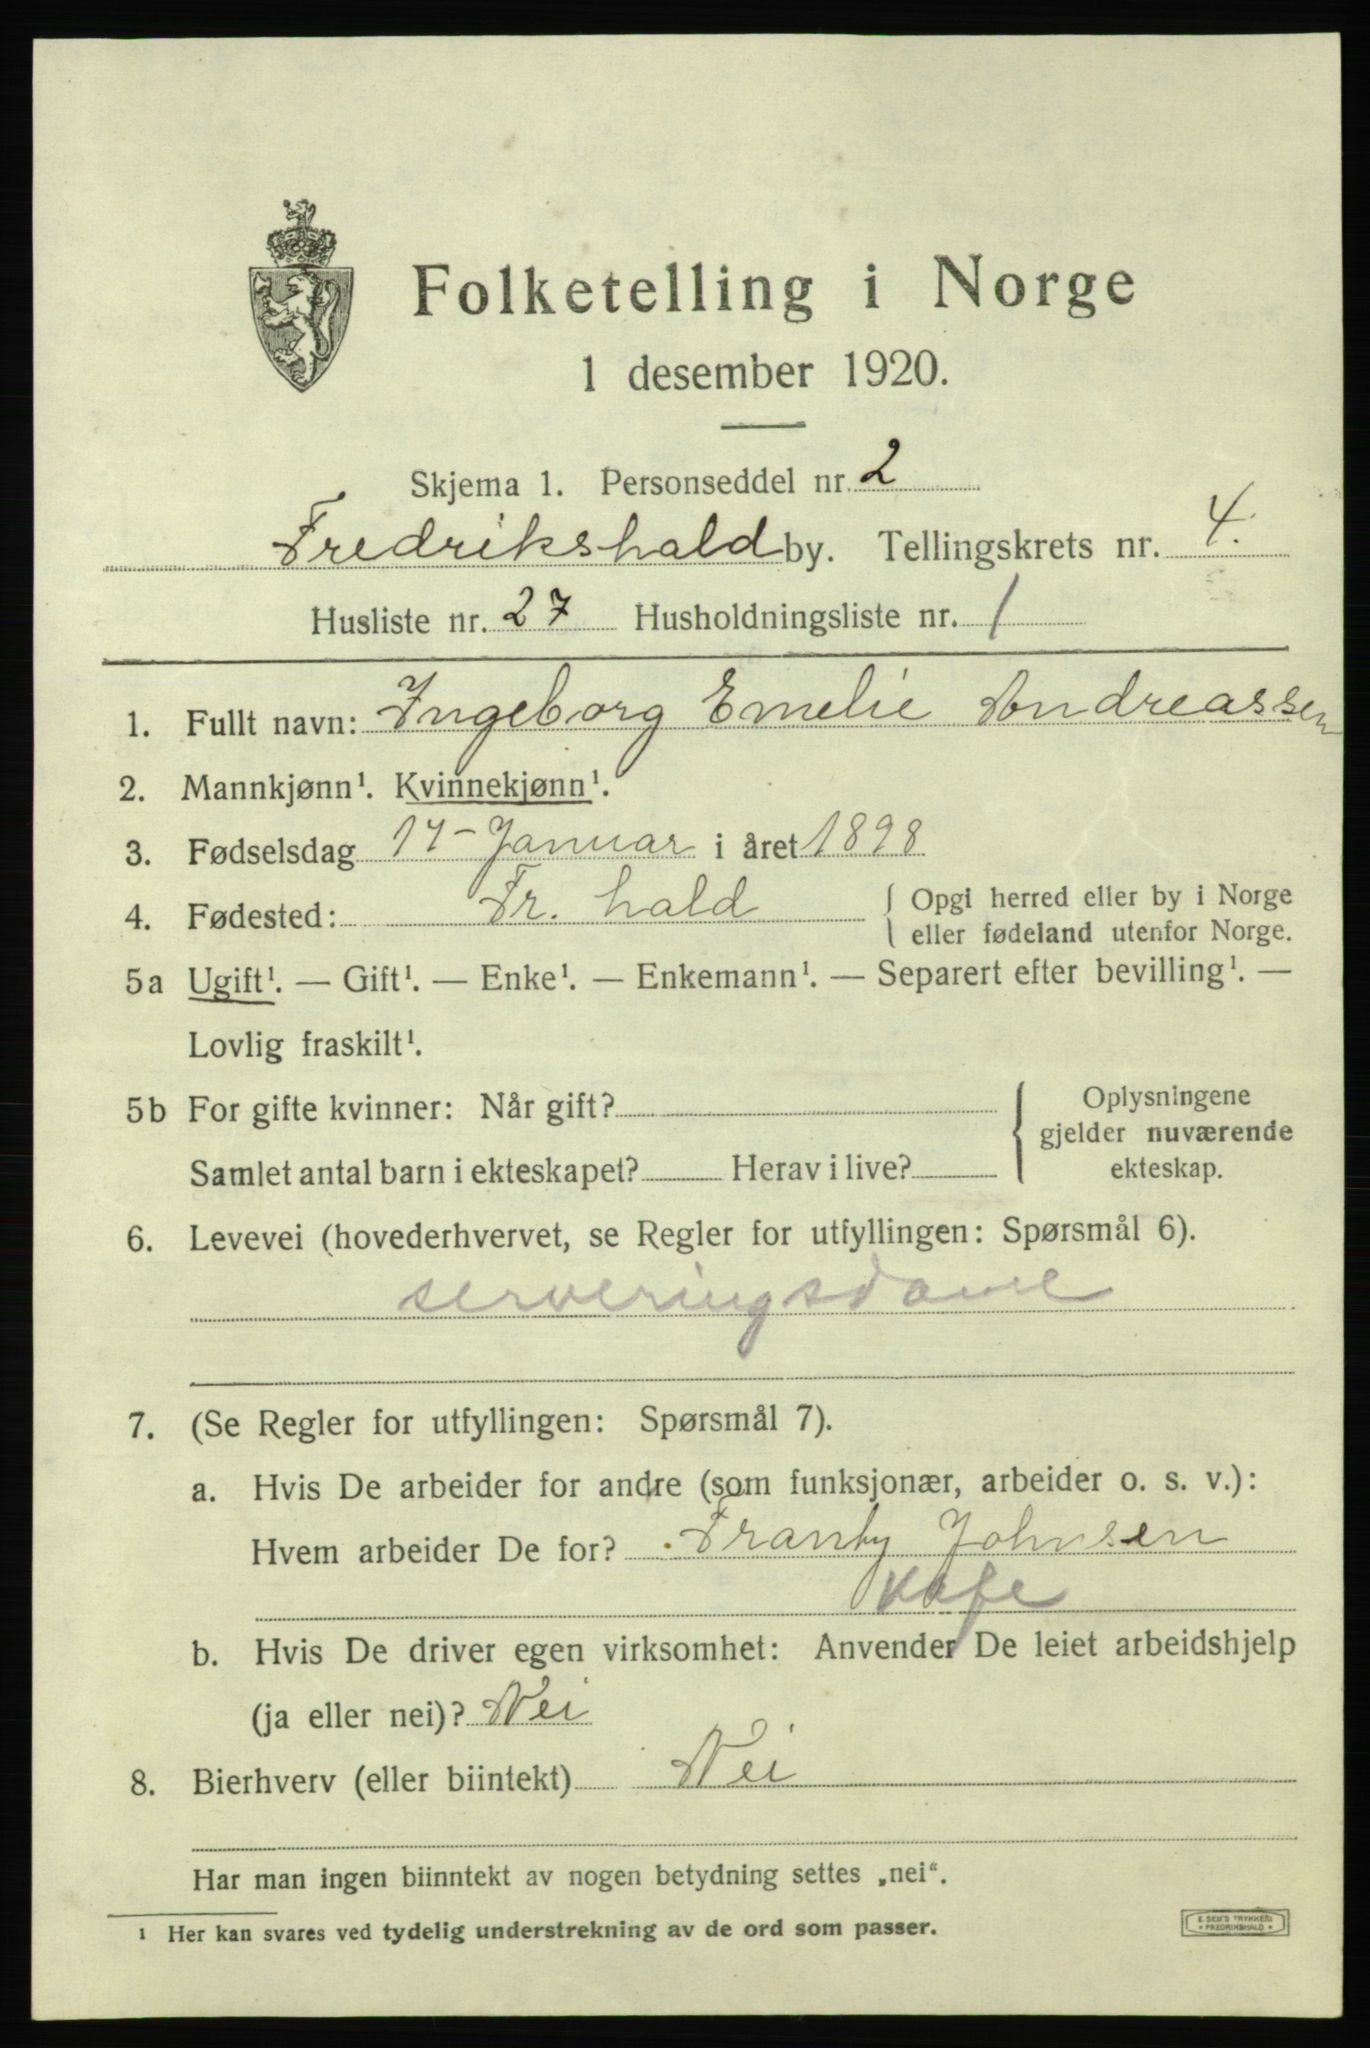 Folketelling i Norge
1 desember 1920.
Skjema 1. Personseddel nr. 2
Fredrikshald by. Tellingskrets nr. 4.
Husliste nr. 27 Husholdningsliste nr. 1
1. Fullt navn: Ingeborg Emelie Andreassen
2. Mannkjønn¹. Kvinnekjønn¹.
3. Fødselsdag 17 - Januar i året 1898
4. Fødested: Fr. hald { Opgi herred eller by i Norge
eller fødeland utenfor Norge.
5a Ugift¹. — Gift¹. — Enke¹. — Enkemann¹. — Separert efter bevilling¹. —
Lovlig fraskilt¹.
5b For gifte kvinner: Når gift? { Oplysningene
gjelder nuværende
Samlet antal barn i ekteskapet? Herav i live? ekteskap.
6. Levevei (hovederhvervet, se Regler for utfyllingen: Spørsmål 6).
serveringsdame
7. (Se Regler for utfyllingen: Spørsmål 7).
a. Hvis De arbeider for andre (som funksjonær, arbeider o. s. v.):
Hvem arbeider De for? Johnsen
Kafe
b. Hvis De driver egen virksomhet: Anvender De leiet arbeidshjelp
(ja eller nei)? Nei
8. Bierhverv (eller biintekt) Nei
Har man ingen biinntekt av nogen betydning settes „nei“.
¹ Her kan svares ved tydelig understrekning av de ord som passer.
E. SEM'S TRYKKERI
FREDRIKSHALD